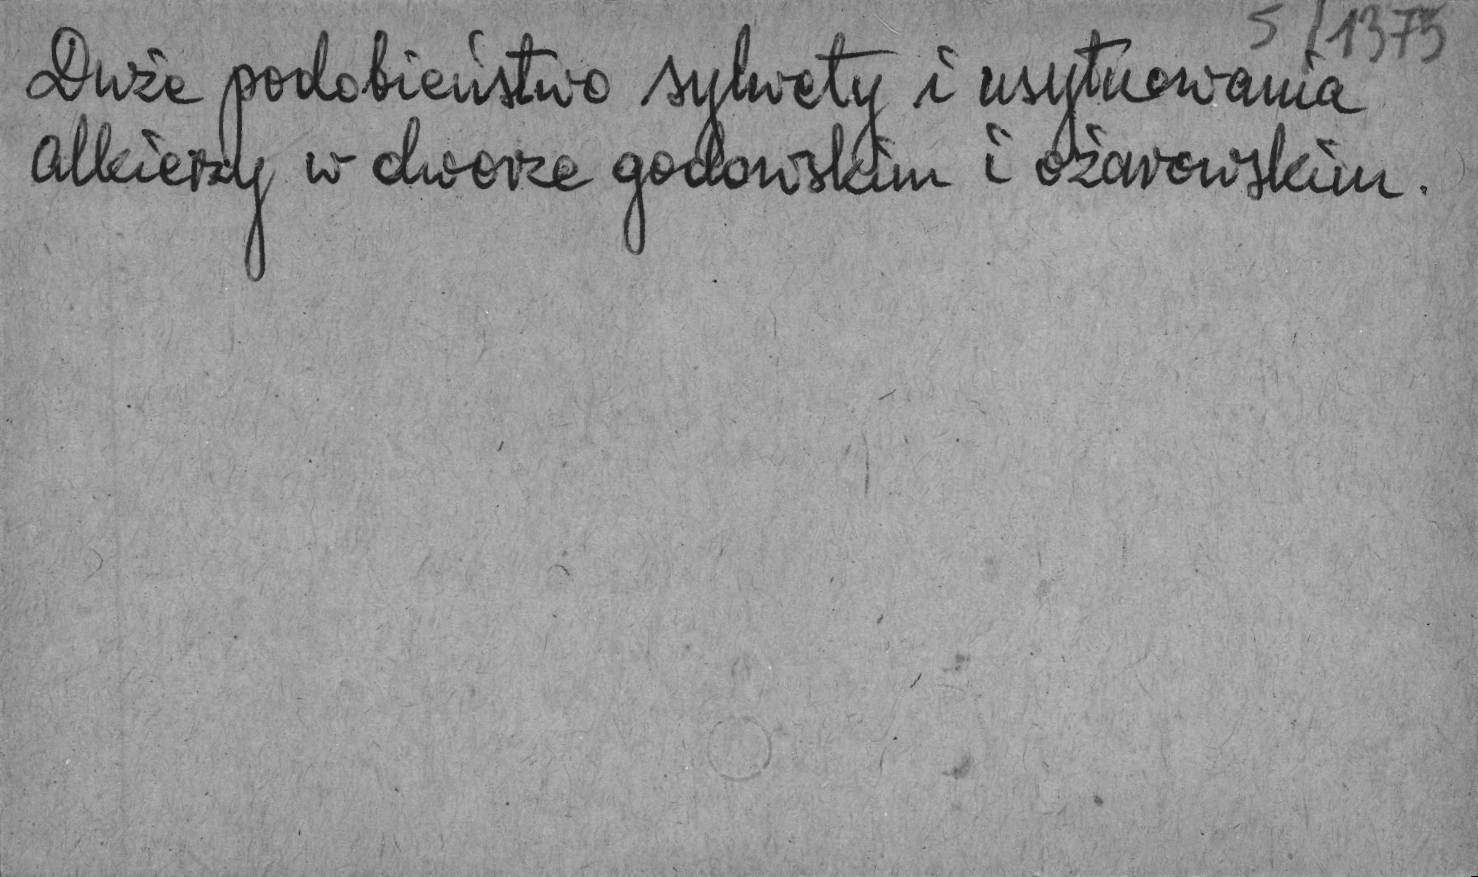 5/1375
Duże podobieństwo sylwety i usytuowania
alkierzy w dworze godowskim i ożarowskim.